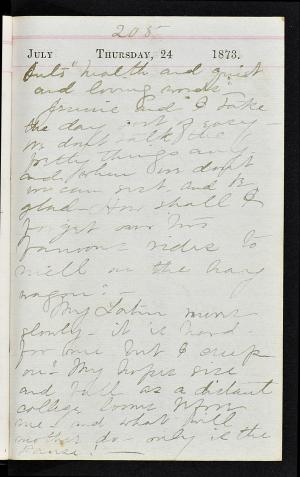 205
JULY THURSDAY, 24 1873.
health and quiet
and loving words
Jennie and I take
the day out of easy—
we don't talk of the
pretty things any
and when we don't
we can rest and be
glad— How shall I
forget our two
famous rides to
mill on the hay
wagon!—
My Latin moves
slowly— it is hard
for me but I keep
on" My hopes rise
and fall as a distant
college looms upon
me— and what will
mother do— only is the
pause!—